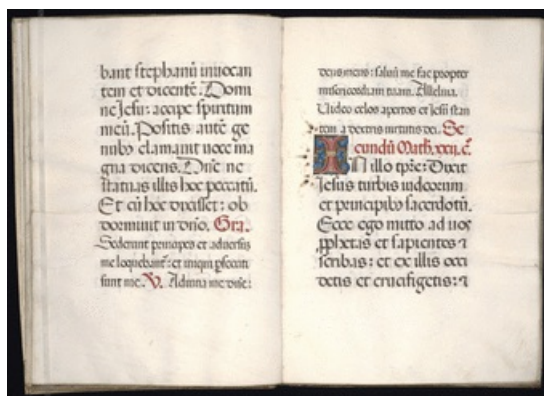 bant stephanū inuocan
tem et dicentē. Domi
ne Jesu: accipe spiritum
meū. Positis autē ge
nibꝰ clamauit uoce ma
gna dicens. Dn̄e ne
statuas illis hoc peccatū.
Et cū hoc dixisset: ob
dormiuit in dn̄o. Gra.
Sederunt principes et aduersus
me loquebant᷑: et iniqui ꝑsecuti
sunt me. V. Adiuua me dn̄e:
deus meus: saluū me fac propter
misericordiam tuam. Alleluia.
Uideo celos apertos et Jesū stan
tem a dextris uirtutis dei. Se
cundū Math. xxii. c.
IN illo tp̄re: Dixit
Jesus turbis iudeorum
et principibꝰ sacerdotū.
Ecce ego mitto ad uos
ꝓphetas et sapientes ⁊
scribas: et ex illis occi
detis et crucifigetis: ⁊